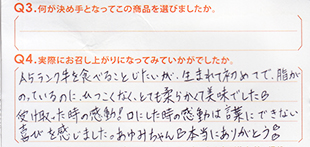 Q3.何が決め手となってこの商品を選びましたか。
Q4.実際にお召し上がりになってみていかがでしたか。
A5ランク牛を食べることじたいが、生まれて初めてで、脂が
のっているのに、ひつこくなく、とても柔らかくて美味でした
受け取った時の感動!口にした時の感動は言葉にできない
喜びを感じました。あゆみちゃん本当にありがとう